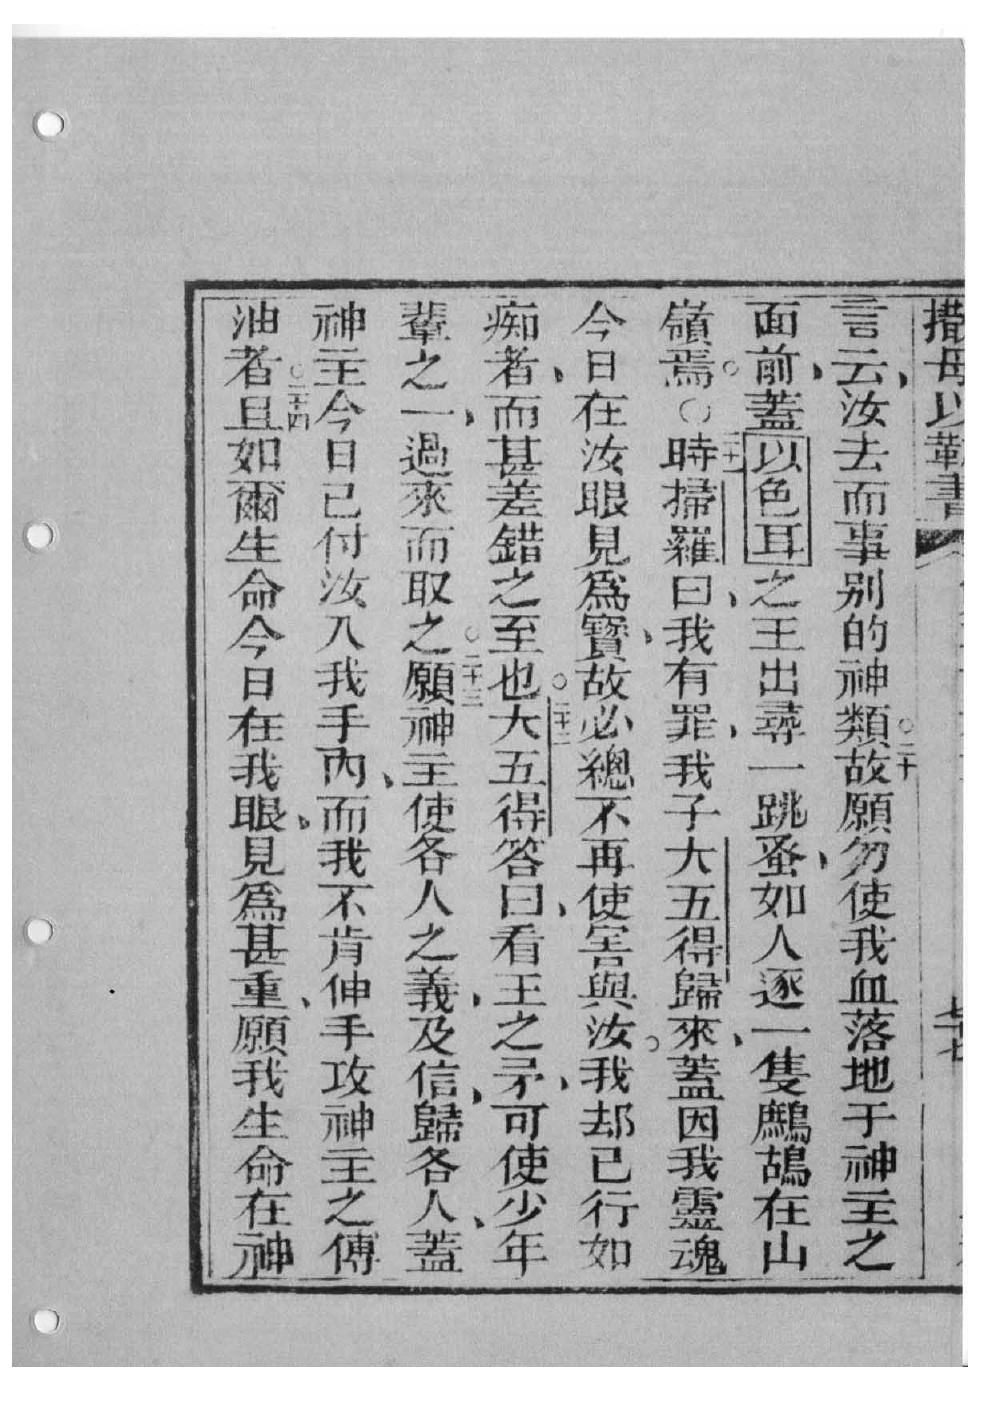 撒母以勒書
言云、汝去而事别的神類○二十故願勿使我血落地于神主之
面前、蓋以色耳之王出尋一跳蚤、如人逐一隻鷓鴣在山
嶺焉。○二十一時掃羅曰、我有罪、我子大五得歸來、蓋因我靈魂
今日在汝眼見爲寶、故必總不再使害與汝。我却已行如
痴者、而甚差錯之至也○二十二大五得答曰、看王之矛、可使少年
輩之一、過來而取之○二十三願神主使各人之義、及信、歸各人、蓋
神主今日已付汝入我手內、而我不肯伸手攻神主之傅
油者○二十四且如爾生命今日在我眼、見爲甚重、願我生命在神